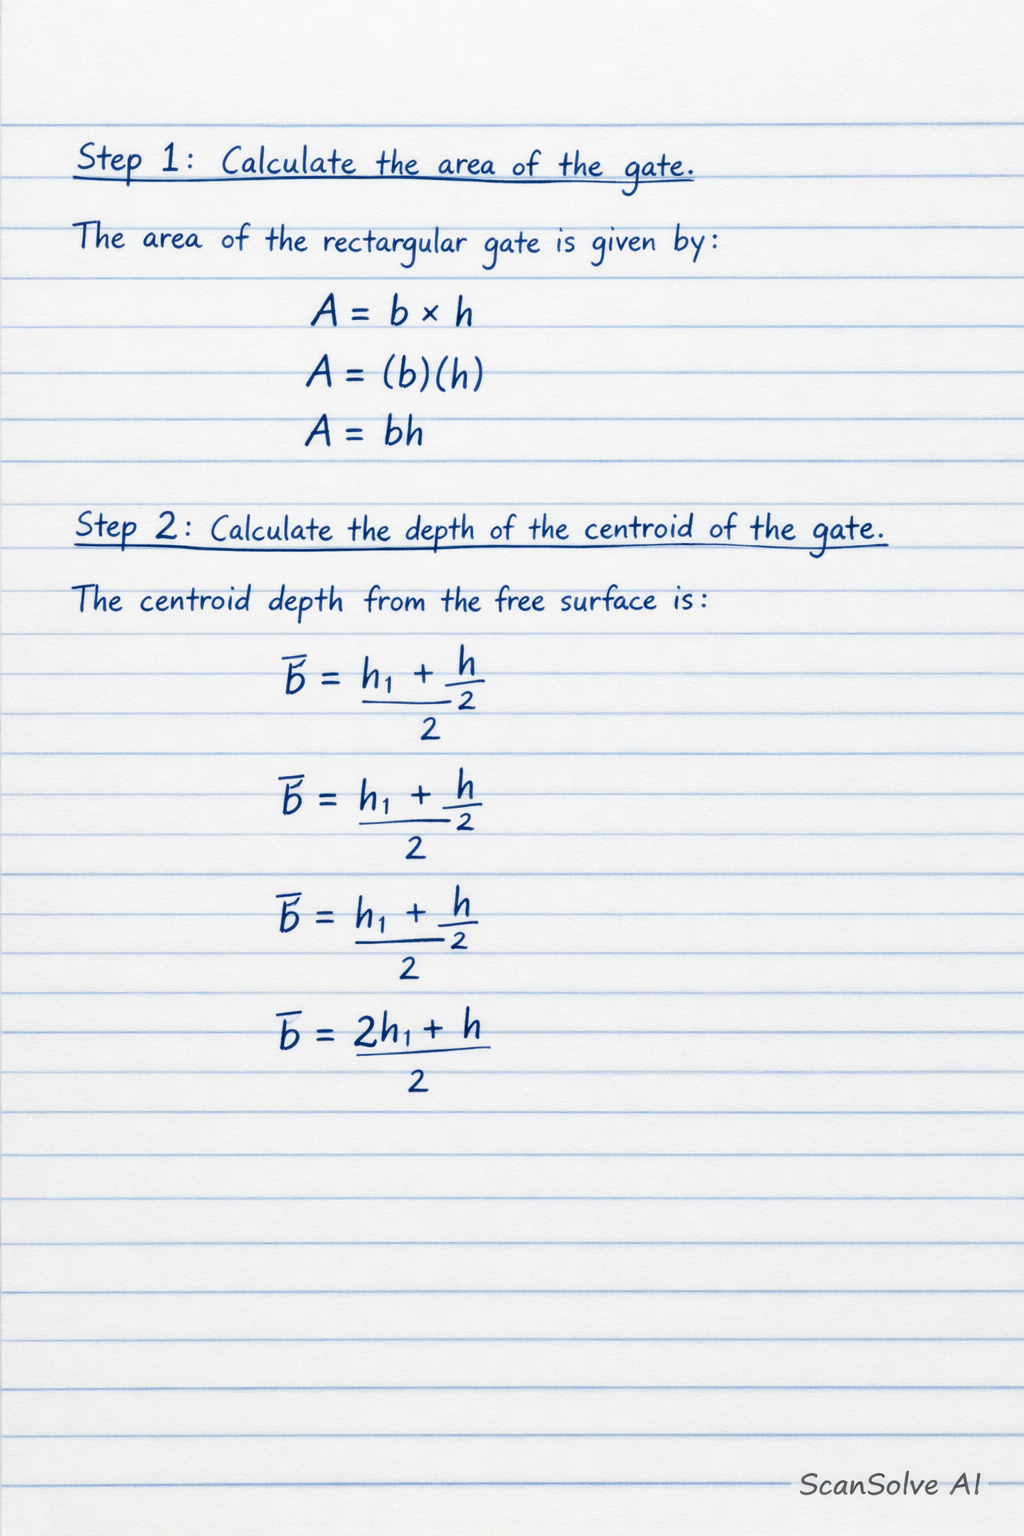 Step 1: Calculate the area of the gate.
The area of the rectangular gate is given by:
A = b × h
A = (b)(h)
A = bh
Step 2: Calculate the depth of the centroid of the gate.
The centroid depth from the free surface is:
b̅ = (h₁ + h/2)/2
b̅ = (h₁ + h/2)/2
b̅ = (h₁ + h/2)/2
b̅ = (2h₁ + h)/2
ScanSolve AI